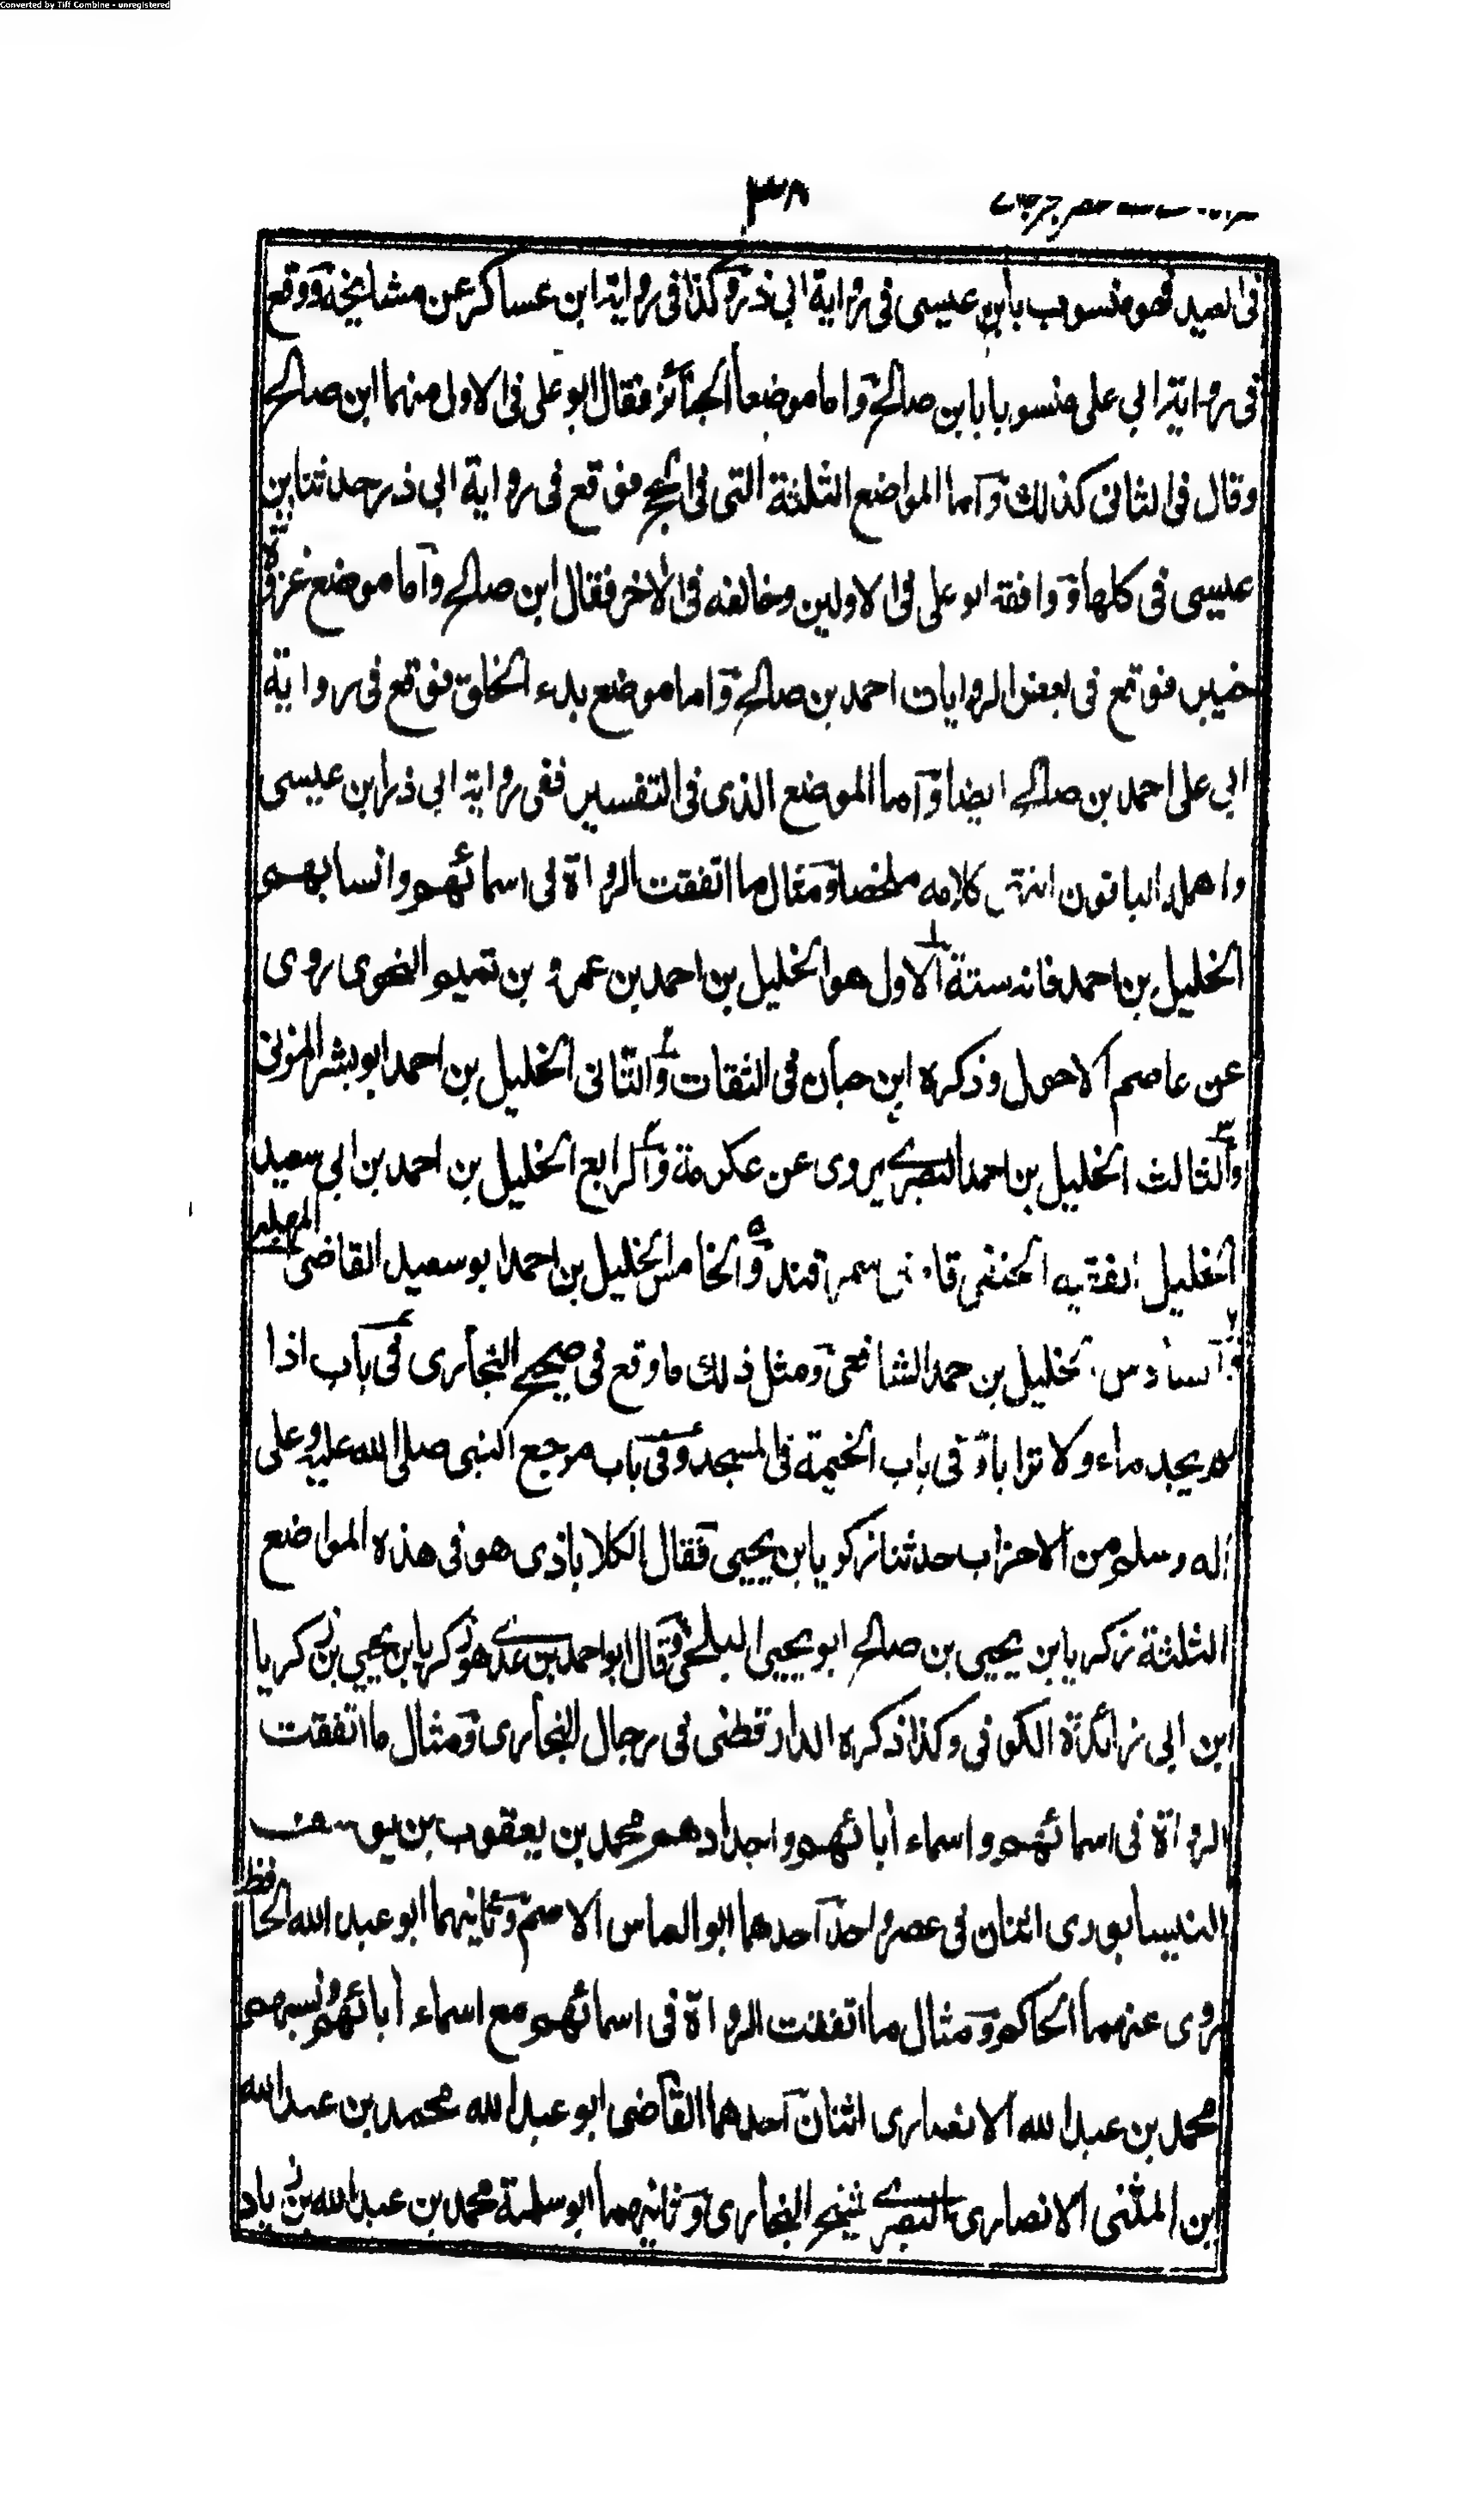 Converted by Tiff Combine - unregistered
٣٨
فى العيد فهو منسوب بابن عيسى فى رواية ابى ذر وكذا فى رواية ابن عساكر عن مشايخه ووقع
فى رواية ابي على منسوبا بابن صالح واما موضعا الجنائز فقال ابو على فى الاول منهما ابن صالح
وقال فى الثانى كذلك وآما المواضع الثلثة التى فى الحج فوقع فى رواية ابى ذر حدثنا بن
عيسى فى كلها ووافقه ابو على فى الاولين وخالفه فى الاخر فقال ابن صالح وآما موضع غزوة
خيبر فوقع فى بعض الروايات احمد بن صالح واما موضع بدء الخلق فوقع فى رواية
ابي على احمد بن صالح ايضا وآما الموضع الذى فى التفسير ففى رواية ابى ذر ابن عيسى
واهمله الباقون انتهى كلامه ملخصا ومثال ما اتفقت الرواة فى اسمائهم وانسابهم
الخليل بن احمد فانه ستة الاول هو الخليل بن احمد بن عمرو بن تميم النحوى روى
عن عاصم الاحول وذكره ابن حبان فى الثقات والثانى الخليل بن احمد ابو بشر المزنى
والثالث الخليل بن احمد البصرے يروى عن عكرمة والرابع الخليل بن احمد بن ابي سعيد
الخليل الفقيه الحنفى قاضى سمرقند والخامس الخليل بن احمد ابو سعيد القاضى المهلبے
والسادس الخليل بن احمد الشافعى ومثل ذلك ما وقع فى صحيح البخارى فى باب اذا
لم يجد ماء ولا ترابا وفى باب الخيمة فى المسجد وفى باب مرجع النبى صلى الله عليه وعلى
اله وسلم من الاحزاب حدثنا زكريا بن يحيى فقال الكلاباذى هو فى هذه المواضع
الثلثة زكريا بن يحيى بن صالح ابو يحيى البلخى وقال ابو احمد بن عدے هو زكريا بن يحيى بن زكريا
ابن ابى زائدة الكوفى وكذا ذكره الدارقطنى فى رجال البخارى ومثال ما اتفقت
الرواة فى اسمائهم واسماء أبائهم واجدادهم محمد بن يعقوب بن يوسف
النيسابورى اثنان فى عصر واحد آحدهما ابو العباس الاصم وثانيهما ابو عبد الله الحافظ
روى عنهما الحاكم ومثال ما اتفقت الرواة فى اسمائهم مع اسماء أبائهم ونسبهم
محمد بن عبد الله الانصارى اثنان آحدهما القاضى ابو عبد الله محمد بن عبد الله
ابن المثنى الانصارى البصرے شيخ البخارى وثانيهما ابو سلمة محمد بن عبد الله بن زياد